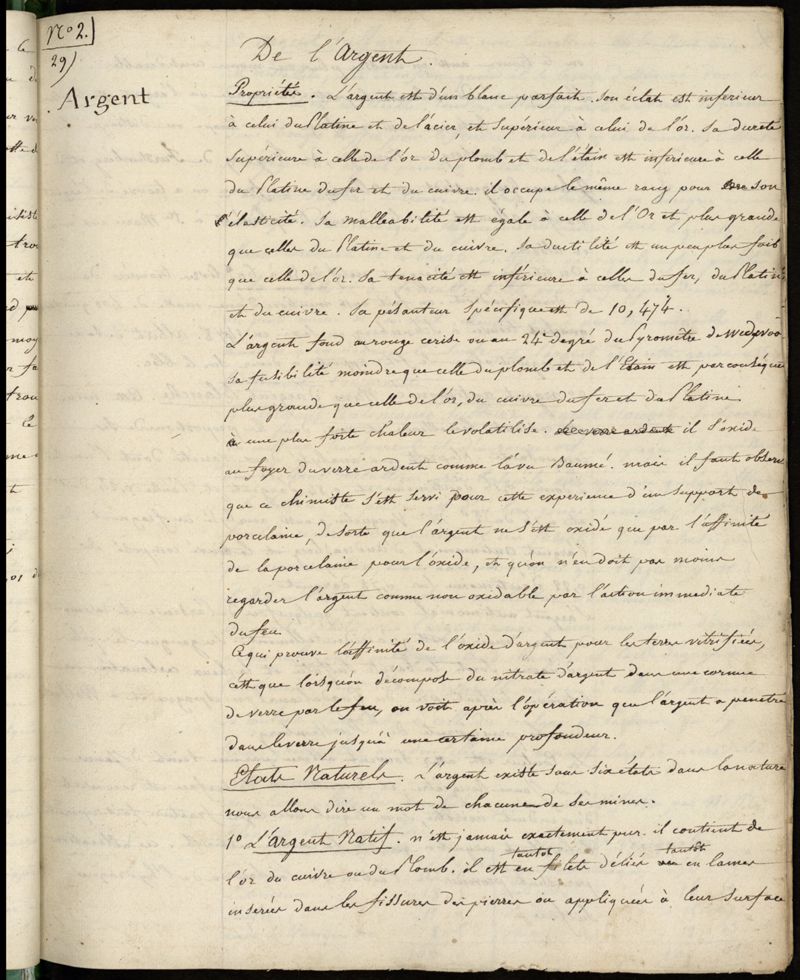 No 2.
29)
Argent
De l'Argent.
Propriétés. L'argent est d'un blanc parfait. son éclat est inferieur
à celui du Platine et de l'acier, et supérieur à celui de l'or. sa dureté
supérieure à celle de l'or du plomb et de l'étain est inferieure à celle
du Platine du fer et du cuivre. il occupe le même rang pour son
l'élasticité. sa malleabilité est égale à celle de l'Or et plus grande
que celles du Platine et du cuivre. sa ductilité est un peu plus foib
que celle de l'or. sa tenacité est inférieure à celles du fer, du Platine
et du cuivre. sa pésanteur spécifique est de 10,474.
L'argent fond au rouge cerise ou au 24e degré du Pyrometre de Wedgvoo
sa fusibilité moindre que celle du plomb et de l'Etain est par conséque
plus grande que celle de l'or, du cuivre du fer et du Platine
à une plus forte chaleur le volatilise. il s'oxide
au foyer du verre ardent comme l'a vu Baumé. mais il faut observ
que ce chimiste s'est servi pour cette experience d'un support de
porcelaine, de sorte que l'argent ne s'est oxidé que par l'affinité
de la porcelaine pour l'óxide, et qu'on n'en doit pas moins
regarder l'argent comme non oxidable par l'action immediate
du feu.
Ce qui prouve l'affinité de l'óxide d'argent pour les terres vitrifiées,
c'est que lorsqu'on décompose du nitrate d'argent dans une cornue
de verre par le feu, on voit après l'opération que l'argent a penetré
dans le verre jusqu'à une certaine profondeur.
Etats Naturels. L'argent existe sous six états dans la nature
nous allons dire un mot de chacune de ses mines.
1o L'argent Natif. n'est jamais exactement pur. il contient de
l'or du cuivre ou du Plomb. il est tantôt en filets déliés tantôt en lames
inserées dans les fissures des pierres ou appliquées à leur surface